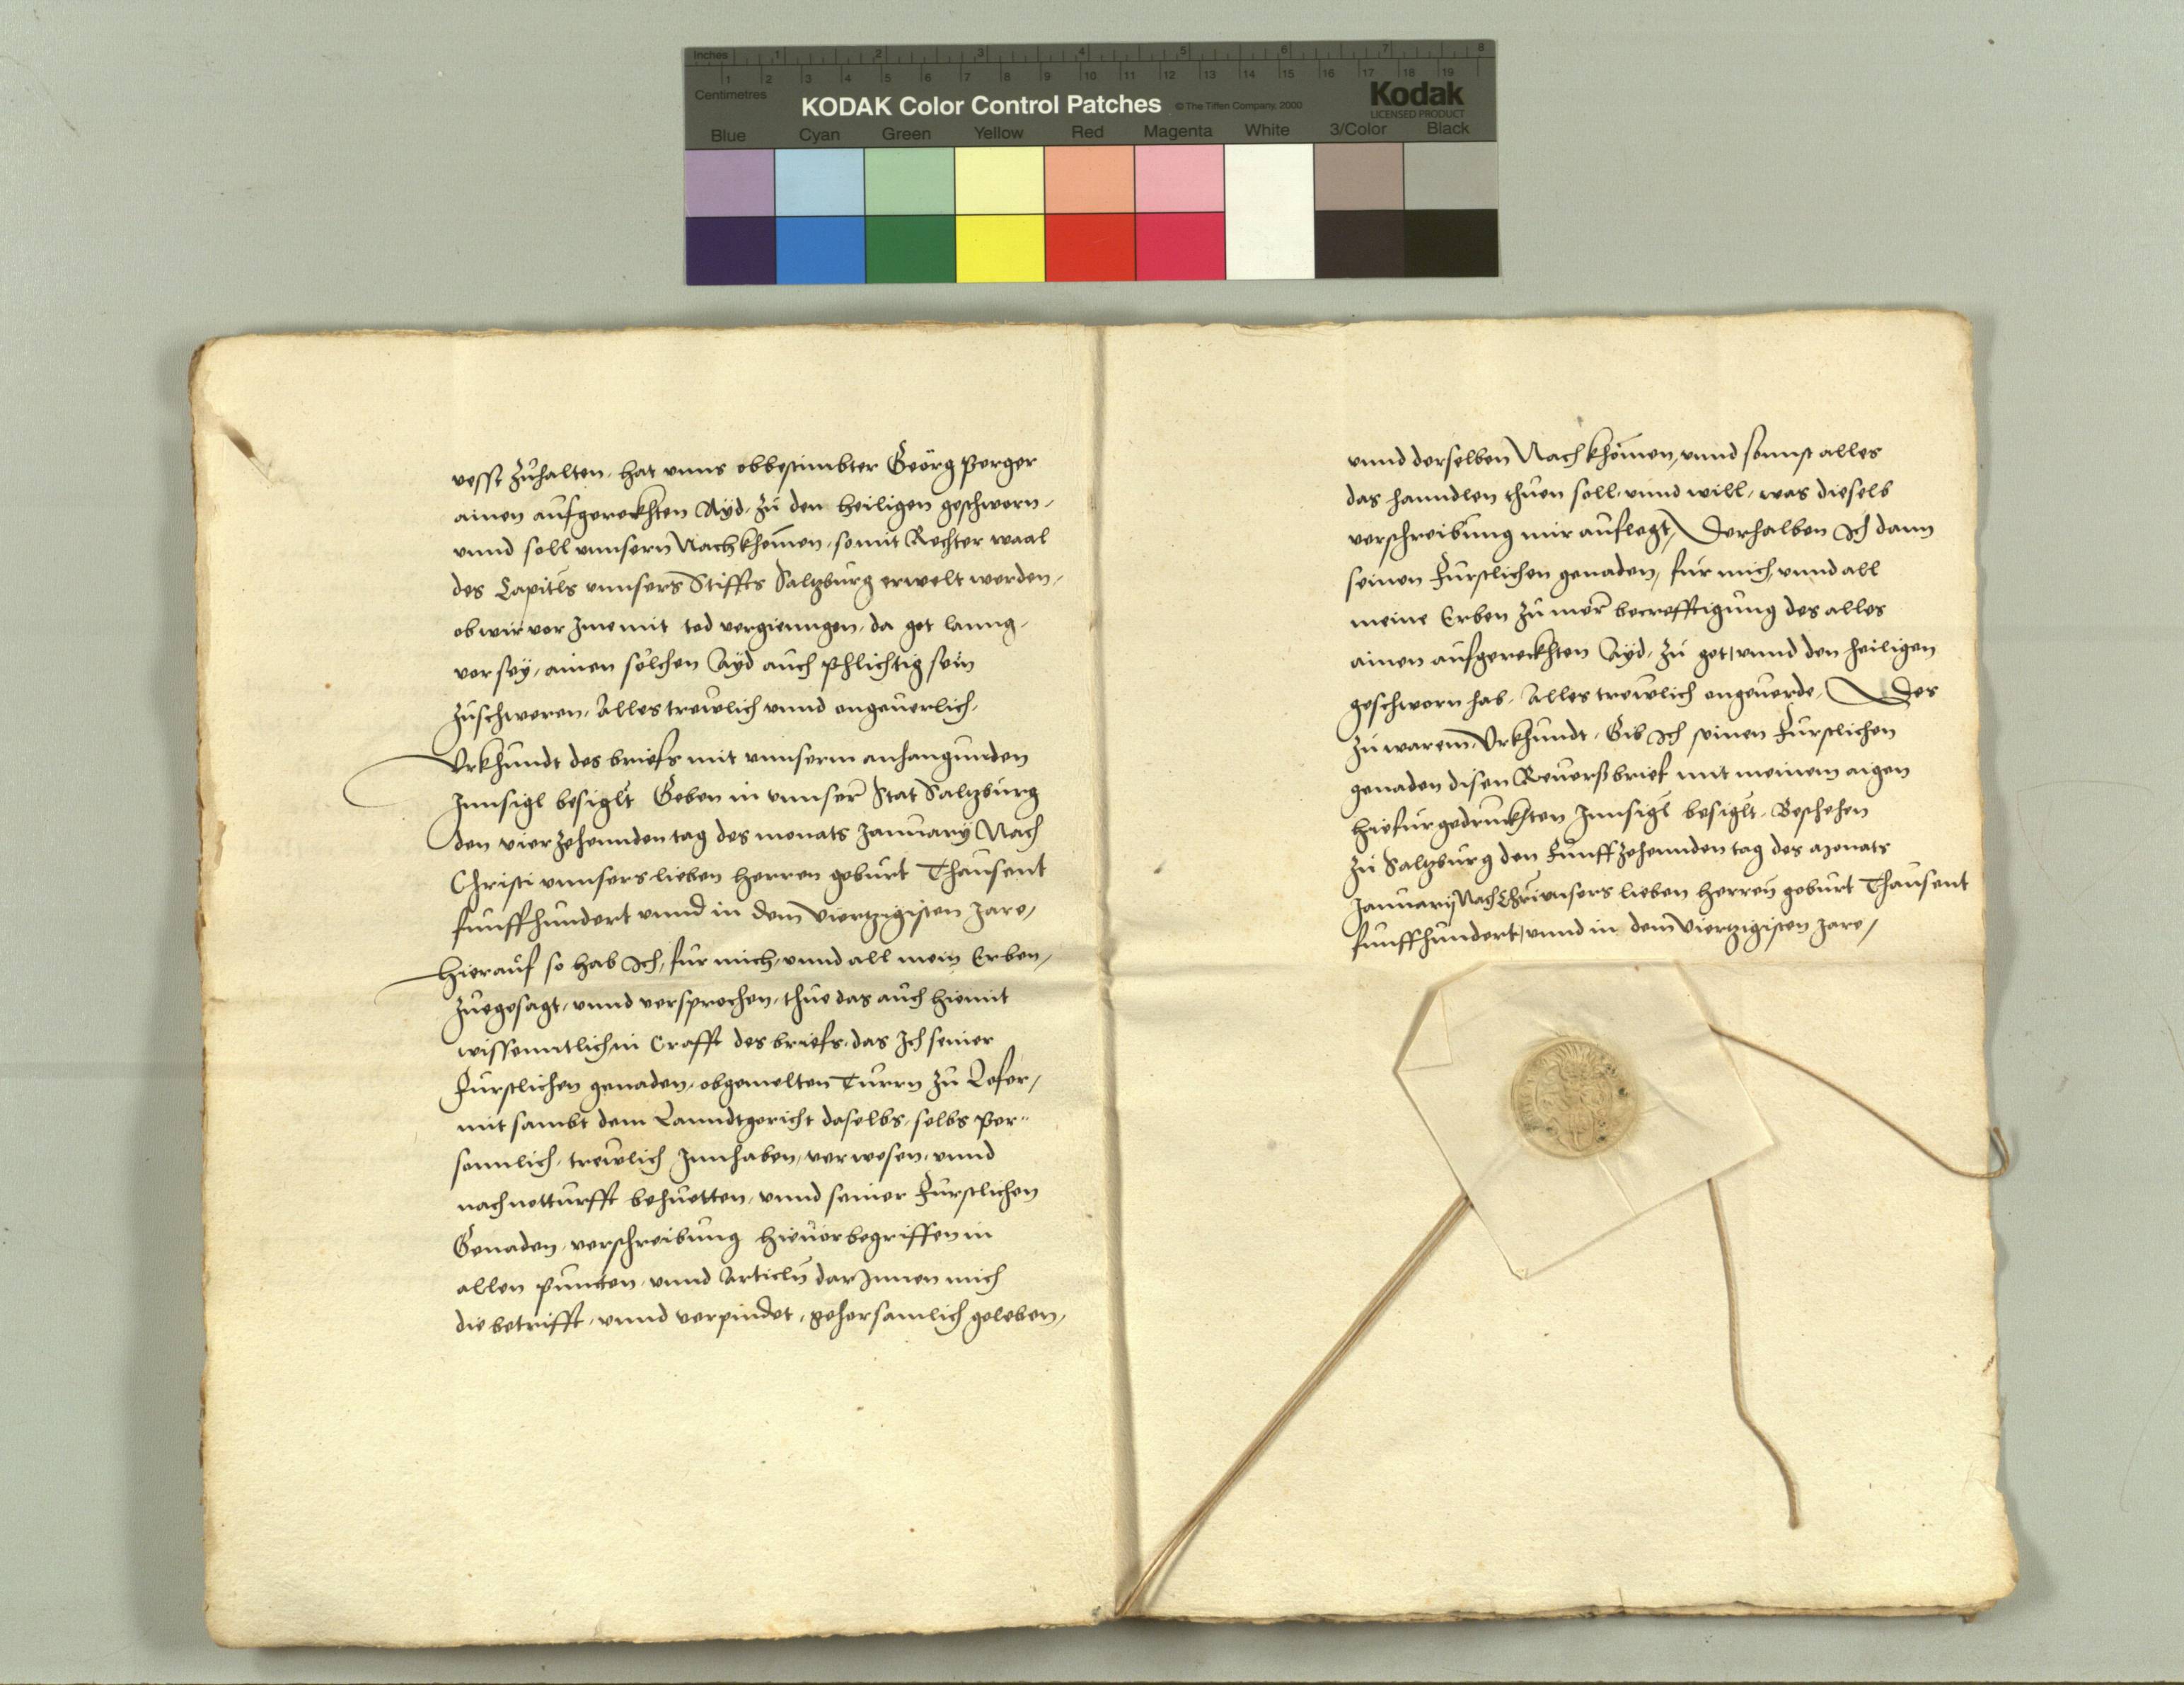 Inches 1 2 3 4 5 6 7 8
1 2 3 4 5 6 7 8 9 10 11 12 13 14 15 16 17 18 19
Centimetres
KODAK Color Control Patches © The Tiffen Company, 2000
Kodak
LICENSED PRODUCT
Blue Cyan Green Yellow Red Magenta White 3/Color Black
vesst zuhalten, hat vnns obbestimbter Geörg Perger
ainen aufgereckhten Ayd, zu den heiligen geschworn,
vnnd soll vnnsern Nachkhomen, so mit Rechter waal
des Capitls vnnsers Stiffts Saltzburg erwelt werden,
ob wir vor Ime mit tod vergienngen, da got lanng,
vor sey, ainen solchen Ayd auch phlichtig sein
zuschweren, Alles trewlich vnnd ongeuerlich,
Vrkhundt des briefs mit vnnserm anhangunden
Innsigl besiglt Geben in vnnser Stat Saltzburg
den vierzehennden tag des monats January Nach
Christi vnnsers lieben herren geburt Thausent
funffhundert vnnd in dem Viertzigisten Jare,
Hierauf so hab Ich, fur mich, vnnd all mein Erben,
zuegesagt, vnnd versprochen, thue das auch hiemit
wissenntlich in Crafft des briefs, das Ich seiner
Furstlichen genaden, obgemelten Turrn zu Lofer,
mit sambt dem Lanndtgericht daselbs, selbs Per„
sonnlich, trewlich Innhaben, verwesen, vnnd
nach notturfft behuetten, vnnd seiner Furstlichen
Genaden, verschreibung hieuor begriffen in
allen puncten, vnnd Articln dar Innen mich
die betrifft, vnnd verpindet, gehorsamlich geleben,
vnnd derselben Nachkhomen, vnnd sonnst alles
das hanndlen thuen soll, vnnd will, was dieselb
verschreibung mir auflegt, Derhalben Ich dann
seinen Furstlichen genaden, fur mich, vnnd all
meine Erben zu mer becrefftigung des alles
ainen aufgereckhten Ayd, zu got, vnnd den heiligen
geschworn hab, Alles trewlich ongeuerde, Des
zu warem Vrkhundt, Gib Ich seinen Furstlichen
genaden disen Reuerßbrief mit meinem aigen
hiefur gedruckhten Innsigl besiglt, Beschehen
zu Saltzburg den Funffzehennden tag des Monats
January Nach Cristi vnsers lieben herren geburt Thausent
funffhundert, vnnd in dem Viertzigisten Jare,